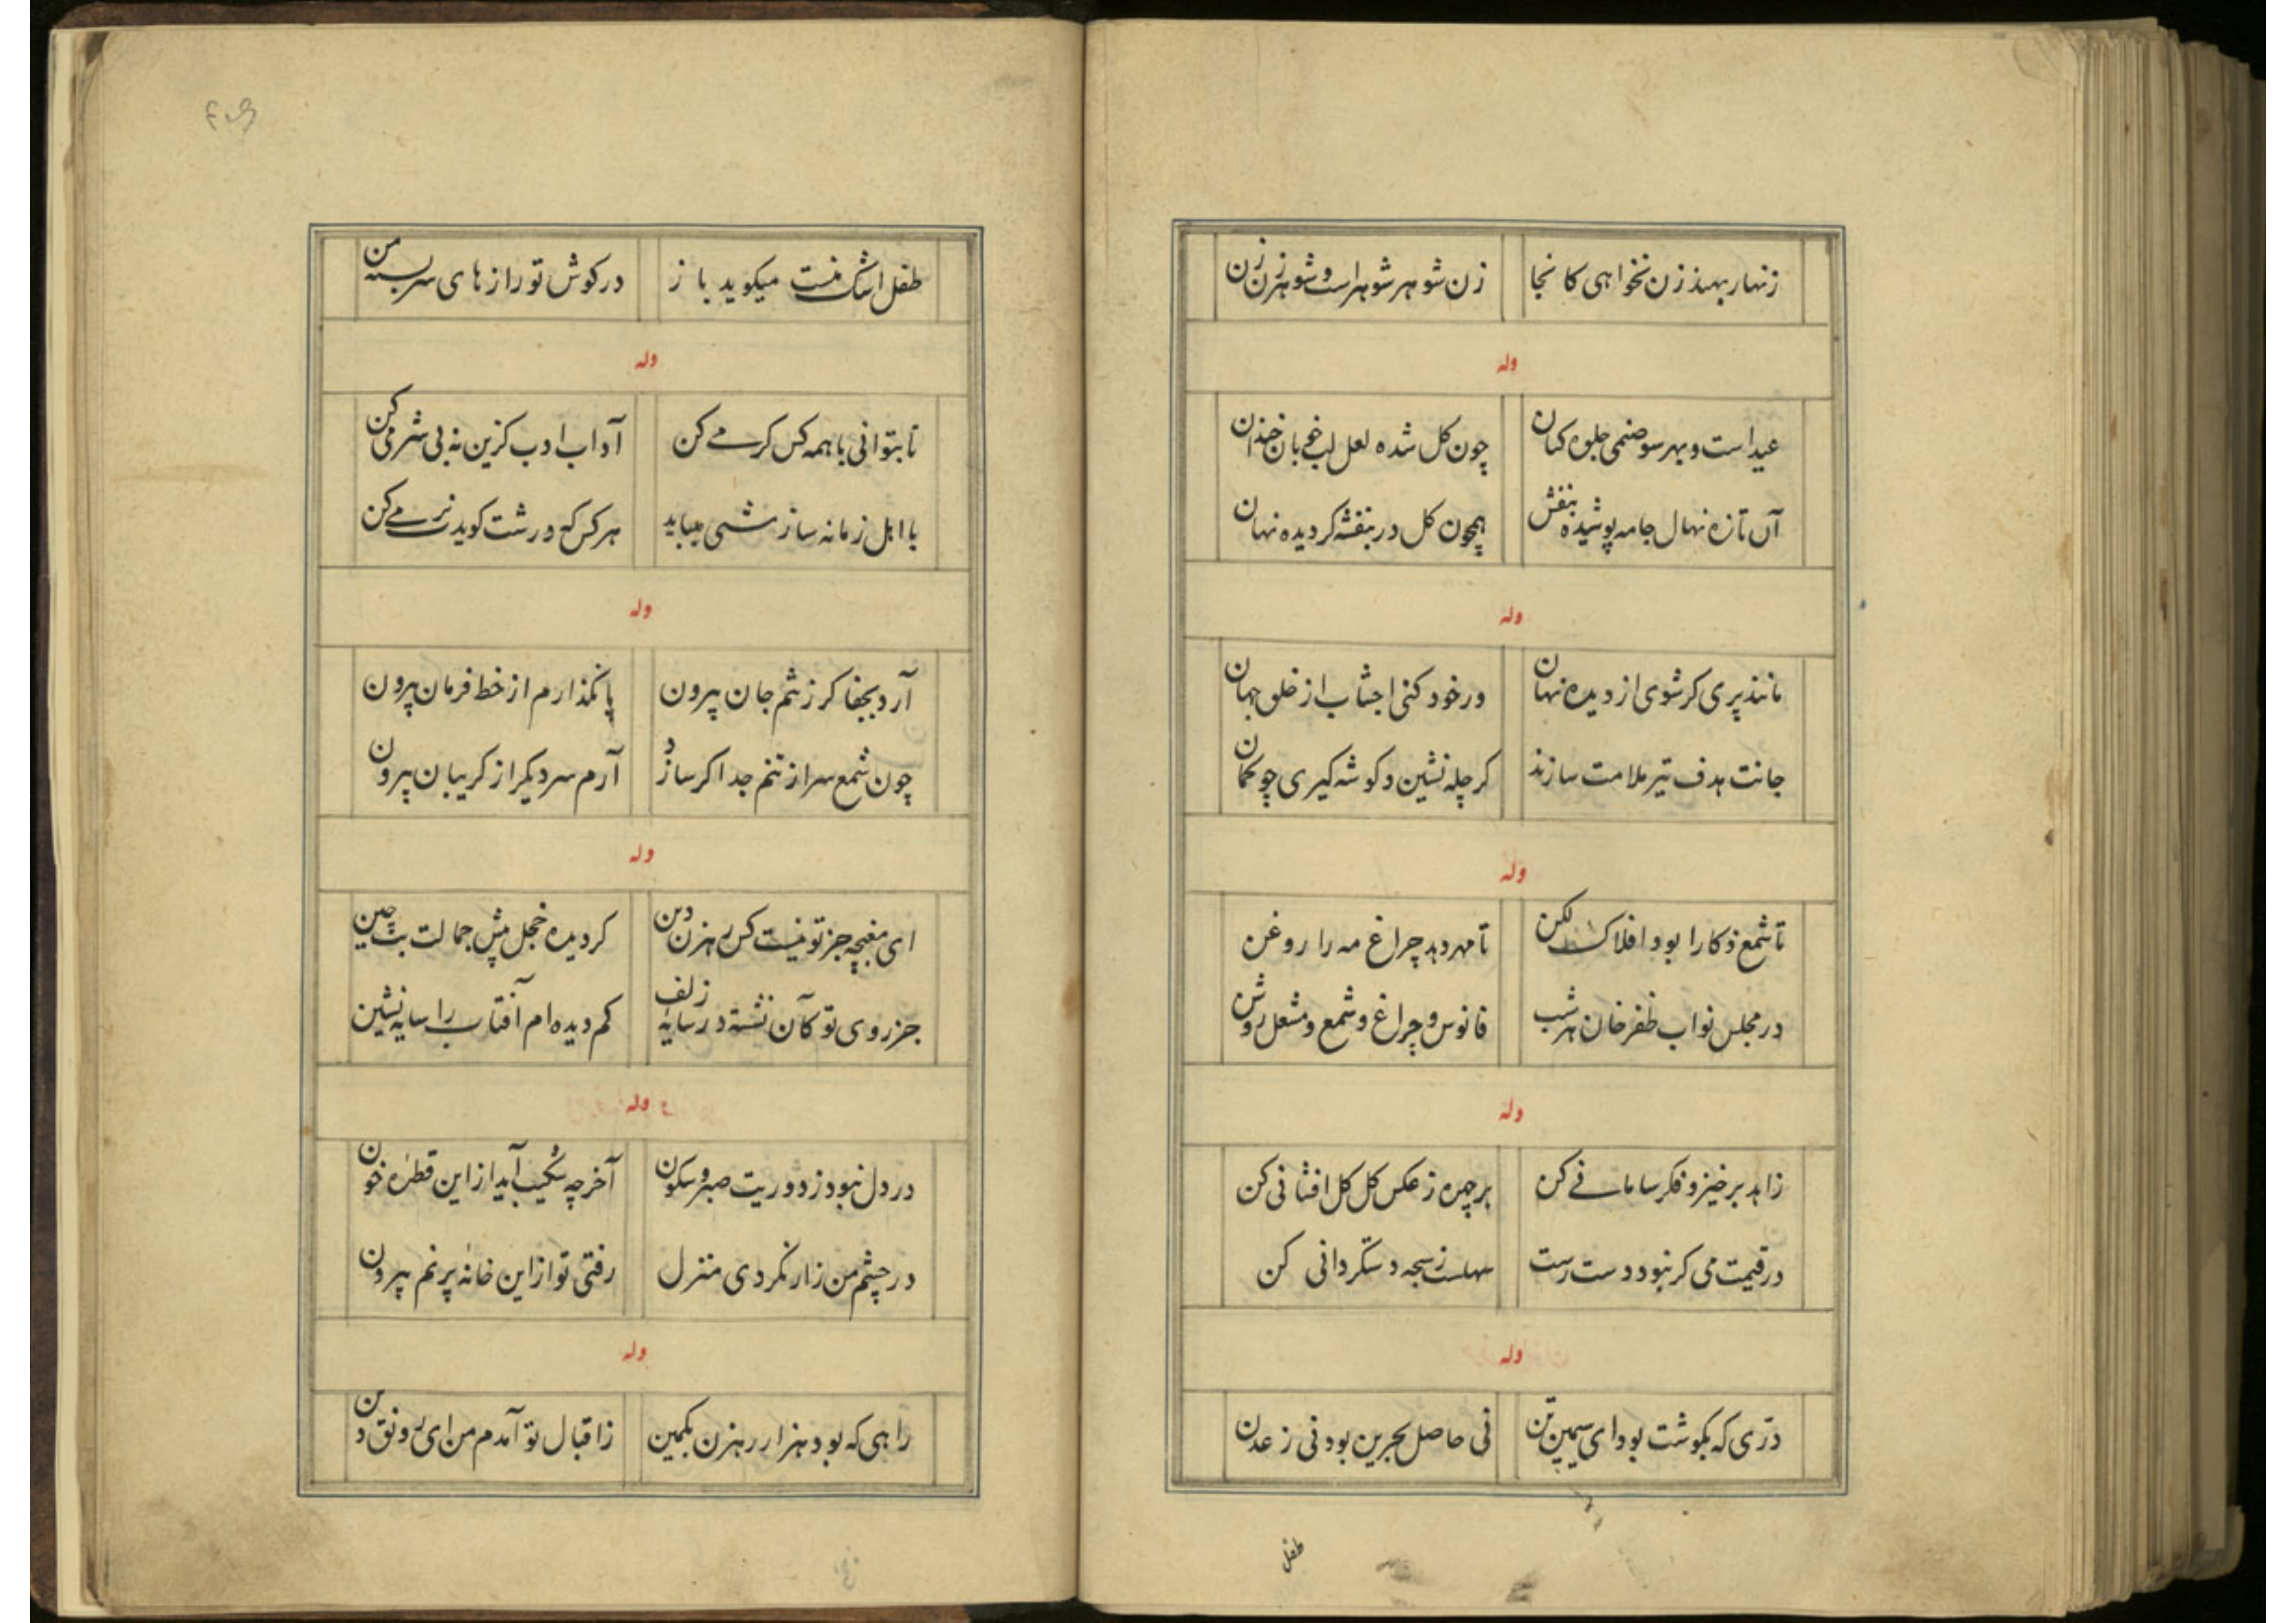 زنهار بهند زن نخواهی کانجا زن شوهر شوهر است و شوهر زن زن
وله
عید است و بهر سو صنمی جلوه کنان چون کل شده لعل لب خوبان خندان
آن تازه نهال جامه پوشیده بنفش همچون کل در بنفشه کردیده نهان
وله
مانند پری کر شوی از دیده نهان ور خود کنی اجتناب از خلق جهان
جانت هدف تیر ملامت سازند کر چله نشین و کوشه کیری چو کمان
وله
تا شمع ذکا را بود افلاک لکن تا مهر دهد چراغ مه را روغن
در مجلس نواب ظفر خان هر شب فانوس و چراغ و شمع و مشعل روشن
وله
زاهد برخیز و فکر سامانی کن بر چهره ز عکس کل کل افشانی کن
در قیمت می کر نبود دست رست سهلست ز سبحه دستکردانی کن
وله
دری که بکوشت بود ای سیمین تن نی حاصل بحرین بود نی ز عدن
طفل
طفل اشک منست میکوید باز در کوش تو رازهای سربسته من
وله
تا بتوانی با همه کس کرمی کن آداب ادب کزین نه بی شرمی کن
با اهل زمانه سازشی میباید هر کس که درشت کوید نرمی کن
وله
آرد بجفا کر ز تنم جان بیرون پا نکذارم از خط فرمان بیرون
چون شمع سر از تنم جدا کر سازد آرم سر دیکر از کریبان بیرون
وله
ای مغبچه جز تو نیست کس رهزن دین کردیده خجل پیش جمالت بت چین
جز روی تو کآن نشسته در سایهٔ زلف کم دیده ام آفتاب را سایه نشین
وله
در دل نبود ز دوریت صبر و سکون آخر چه شکیب آید از این قطرهٔ خون
در چشم من زار نکردی منزل رفتی تو از این خانهٔ پرنم بیرون
وله
راهی که بود هزار رهزن بکمین ز اقبال تو آمدم من ای رونق دین